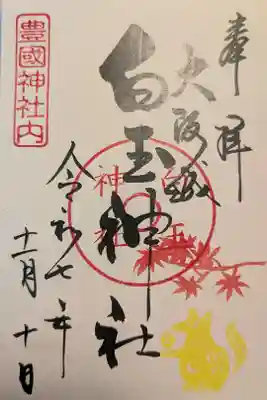 奉拝
大阪城
白玉神社
白玉神社
令和七年
十一月十日
豊國神社内